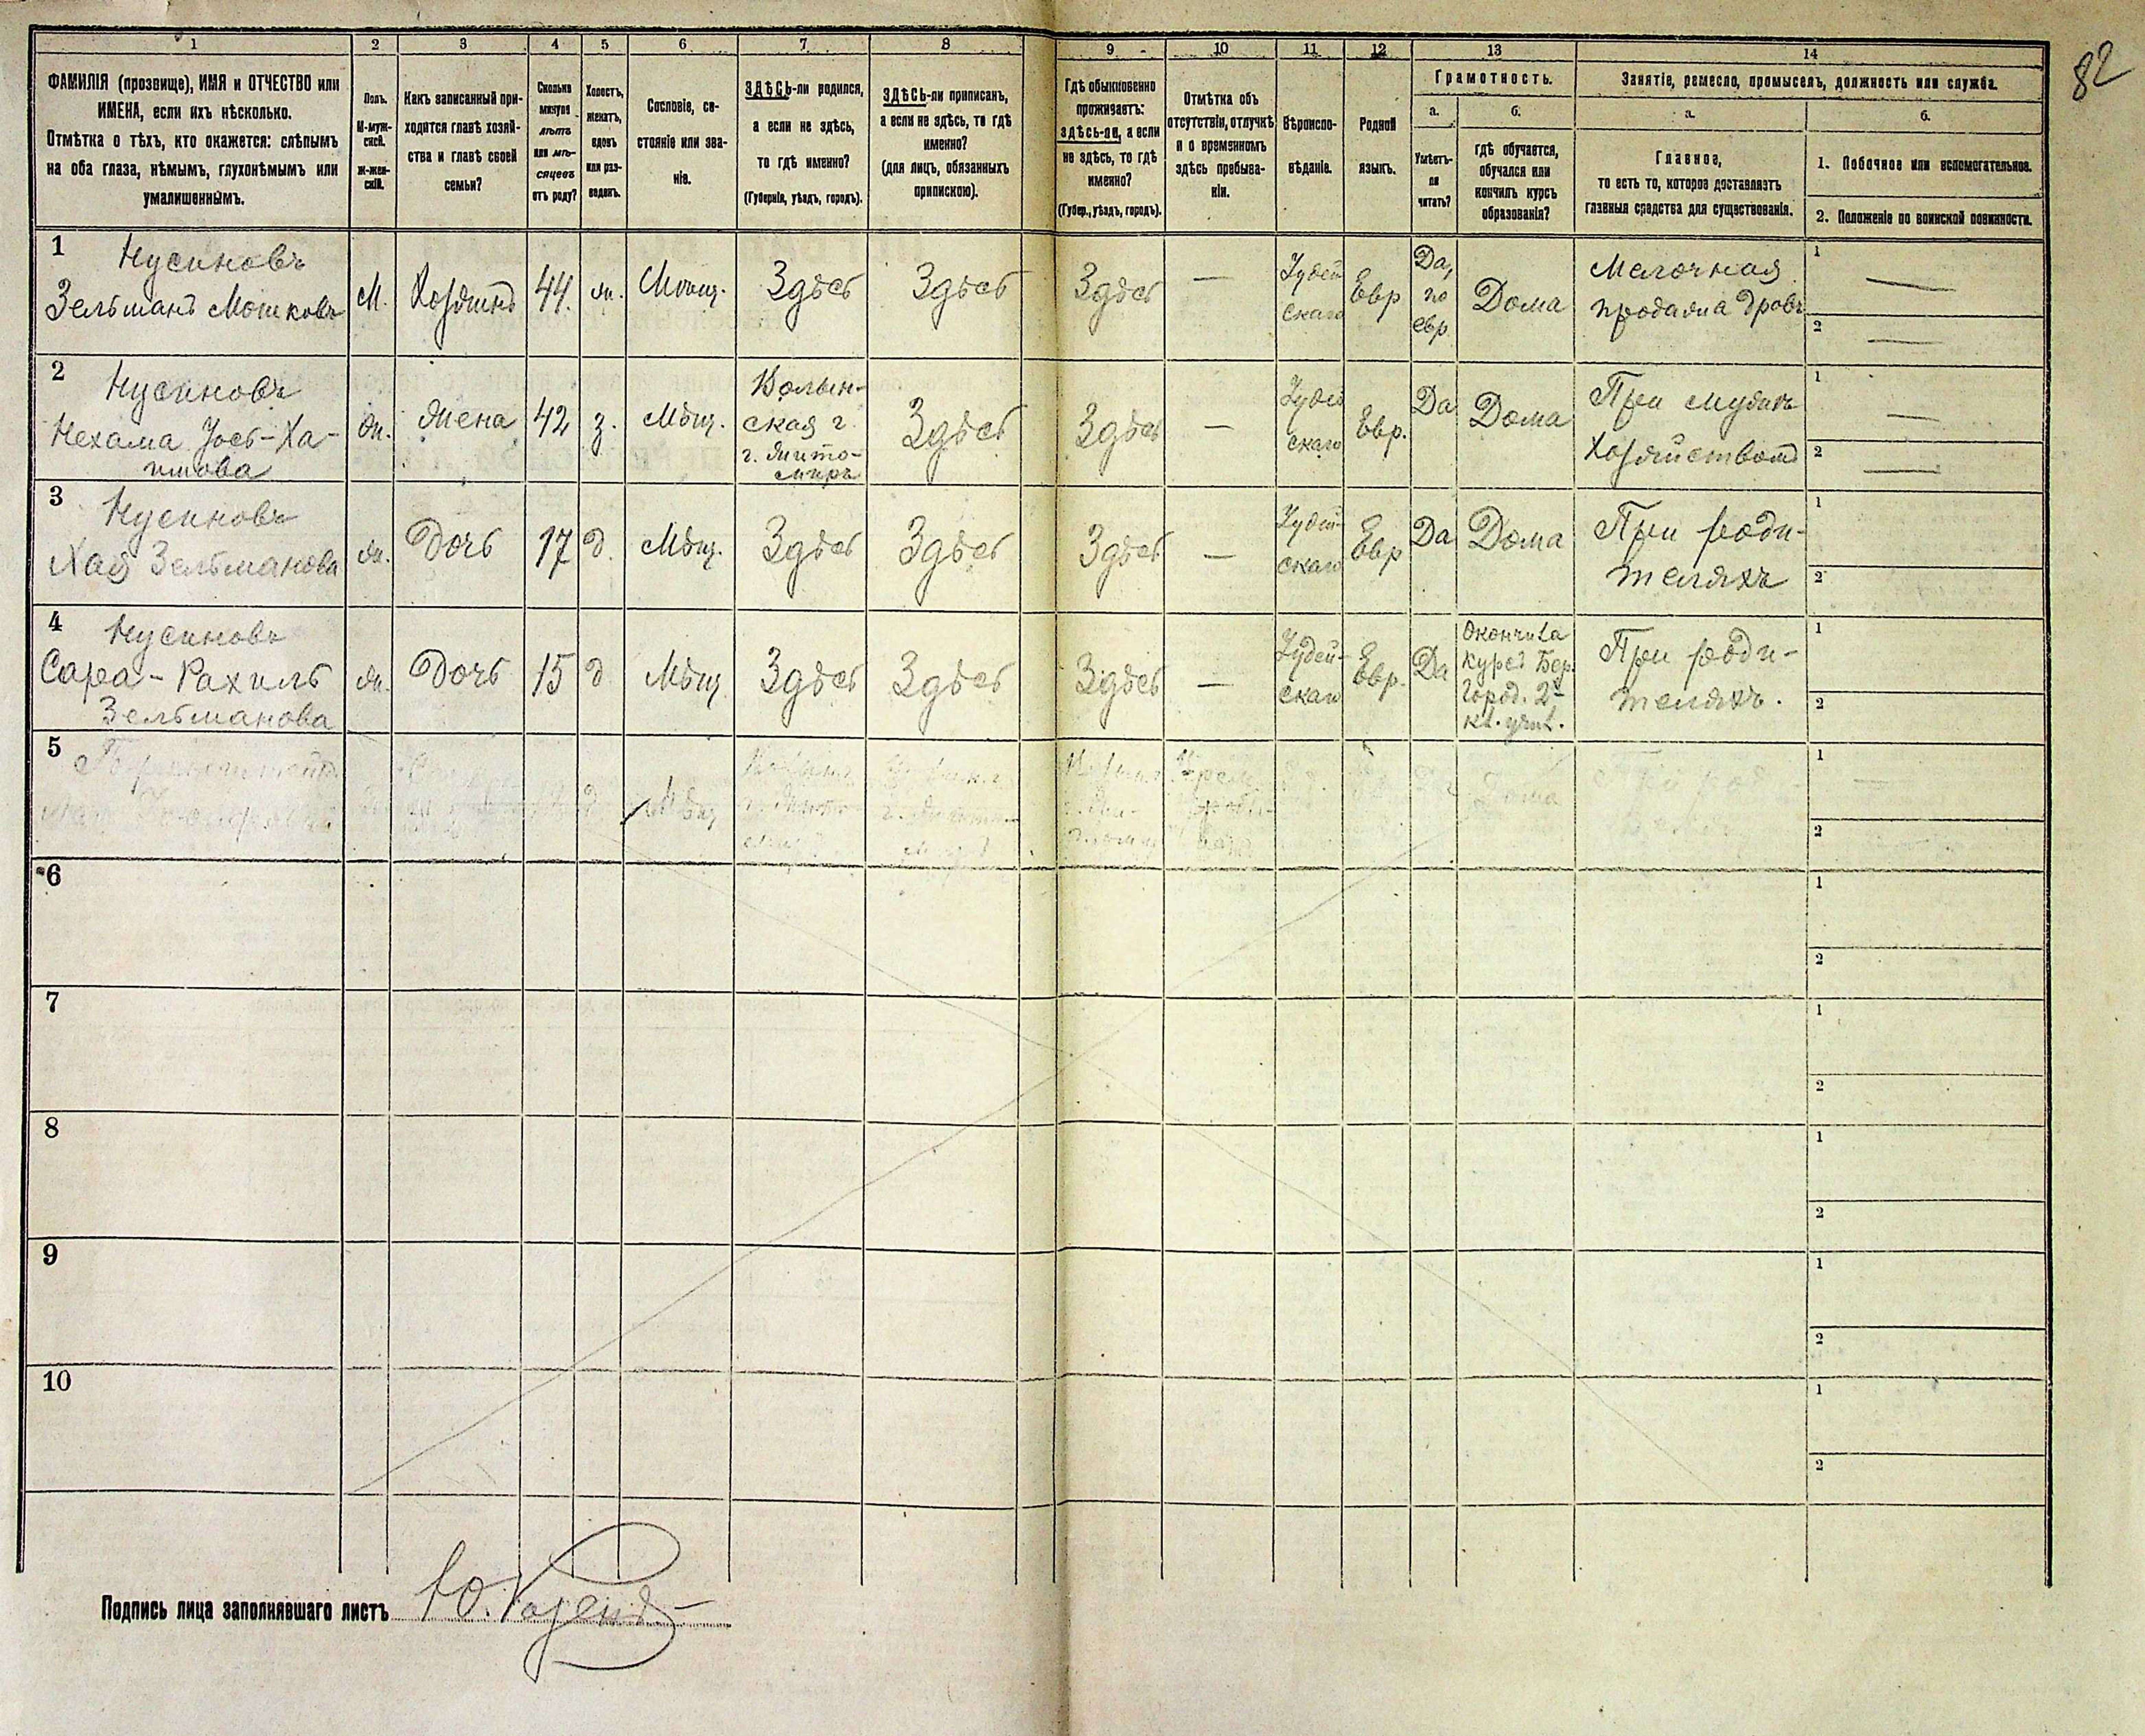 82
1 2 3 4 5 6 7 8 9 10 11 12 13 14
ФАМИЛІЯ (прозвище), ИМЯ и ОТЧЕСТВО или
ИМЕНА, если ихъ нѣсколько.
Отмѣтка о тѣхъ, кто окажется: слѣпымъ
на оба глаза, нѣмымъ, глухонѣмымъ или
умалишеннымъ.
Полъ.
М-муж-
ской.
Ж-жен-
скій.
Какъ записанный при-
ходится главѣ хозяй-
ства и главѣ своей
семьи?
Сколько
минуло
лѣтъ
или мѣ-
сяцевъ
отъ роду?
Холостъ,
женатъ,
вдовъ
или раз-
веденъ.
Сословіе, со-
стояніе или зва-
ніе.
ЗДѢСЬ-ли родился,
а если не здѣсь,
то гдѣ именно?
(Губернія, уѣздъ, городъ).
ЗДѢСЬ-ли приписанъ,
а если не здѣсь, то гдѣ
именно?
(для лицъ, обязанныхъ
припискою).
Гдѣ обыкновенно
проживаетъ:
здѣсь-ли, а если
не здѣсь, то гдѣ
именно?
(Губер., уѣздъ, городъ).
Отмѣтка объ
отсутствіи, отлучкѣ
и о временномъ
здѣсь пребыва-
ніи.
Вѣроиспо-
вѣданіе.
Родной
языкъ.
Грамотность.
а.
Умѣетъ-
ли
читать?
б.
гдѣ обучается,
обучался или
кончилъ курсъ
образованія?
Занятіе, ремесло, промыселъ, должность или служба.
а.
Главное,
то есть то, которое доставляетъ
главныя средства для существованія.
б.
1. Побочное или вспомогательное.
2. Положеніе по воинской повинности.
1
Нусиновъ
Зельманъ Мошковъ
М.
Хозяинъ
44.
ж.
Мѣщ.
Здѣсь
Здѣсь
Здѣсь
—
Іудей
скаго
Евр
Да,
по
евр
Дома
Мелочная
продажа дровъ
1 —
2 —
2
Нусиновъ
Нехама Іось-Ха-
имова
ж.
жена
42
з.
Мѣщ.
Волын-
ская г.
г. Жито-
миръ
Здѣсь
Здѣсь
—
Іудей
скаго
Евр.
Да
Дома
При мужѣ
хозяйствомъ
1 —
2 —
3
Нусиновъ
Хая Зельманова
ж.
Дочь
17
д.
Мѣщ.
Здѣсь
Здѣсь
Здѣсь
—
Іудей-
скаго
Евр
Да
Дома
При роди-
теляхъ
1
2
4
Нусиновъ
Сара-Рахиль
Зельманова
ж.
Дочь
15
д
Мѣщ.
Здѣсь
Здѣсь
Здѣсь
—
Іудей-
скаго
Евр.
Да
Окончила
курсъ Бер.
Город. 2-
кл. учил.
При роди-
теляхъ.
1
2
5
д
Мѣщ
Дома
1 —
2
6
1
2
7
1
2
8
1
2
9
1
2
10
1
2
Подпись лица заполнявшаго листъ